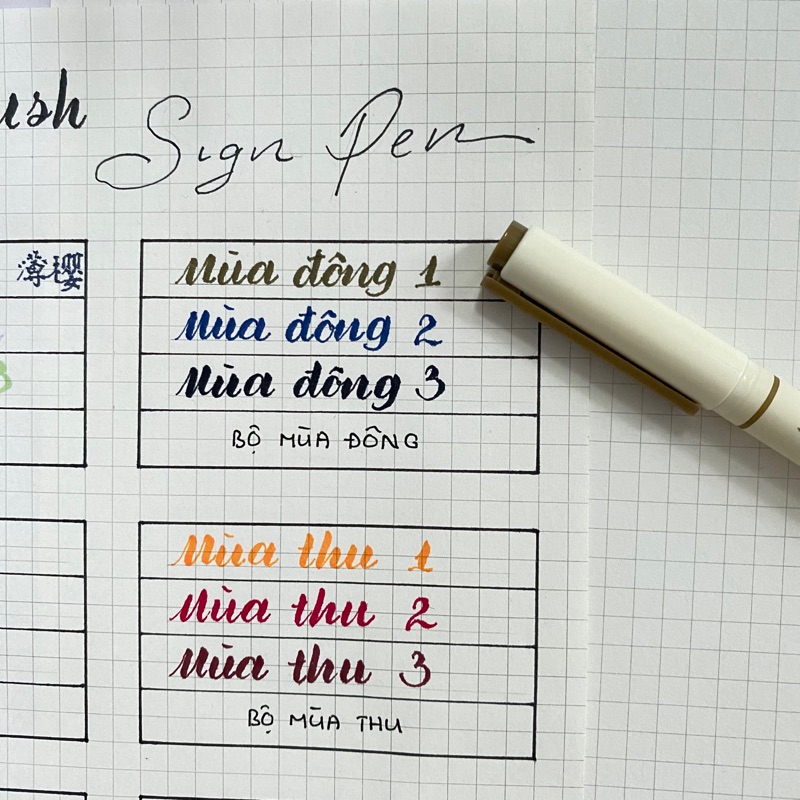 ush
Sign Pen
薄櫻
Mùa đông 1
Mùa đông 2
Mùa đông 3
BỘ MÙA ĐÔNG
Mùa thu 1
Mùa thu 2
Mùa thu 3
BỘ MÙA THU